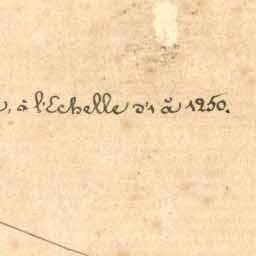 , à l'Echelle d'1 à 1250.